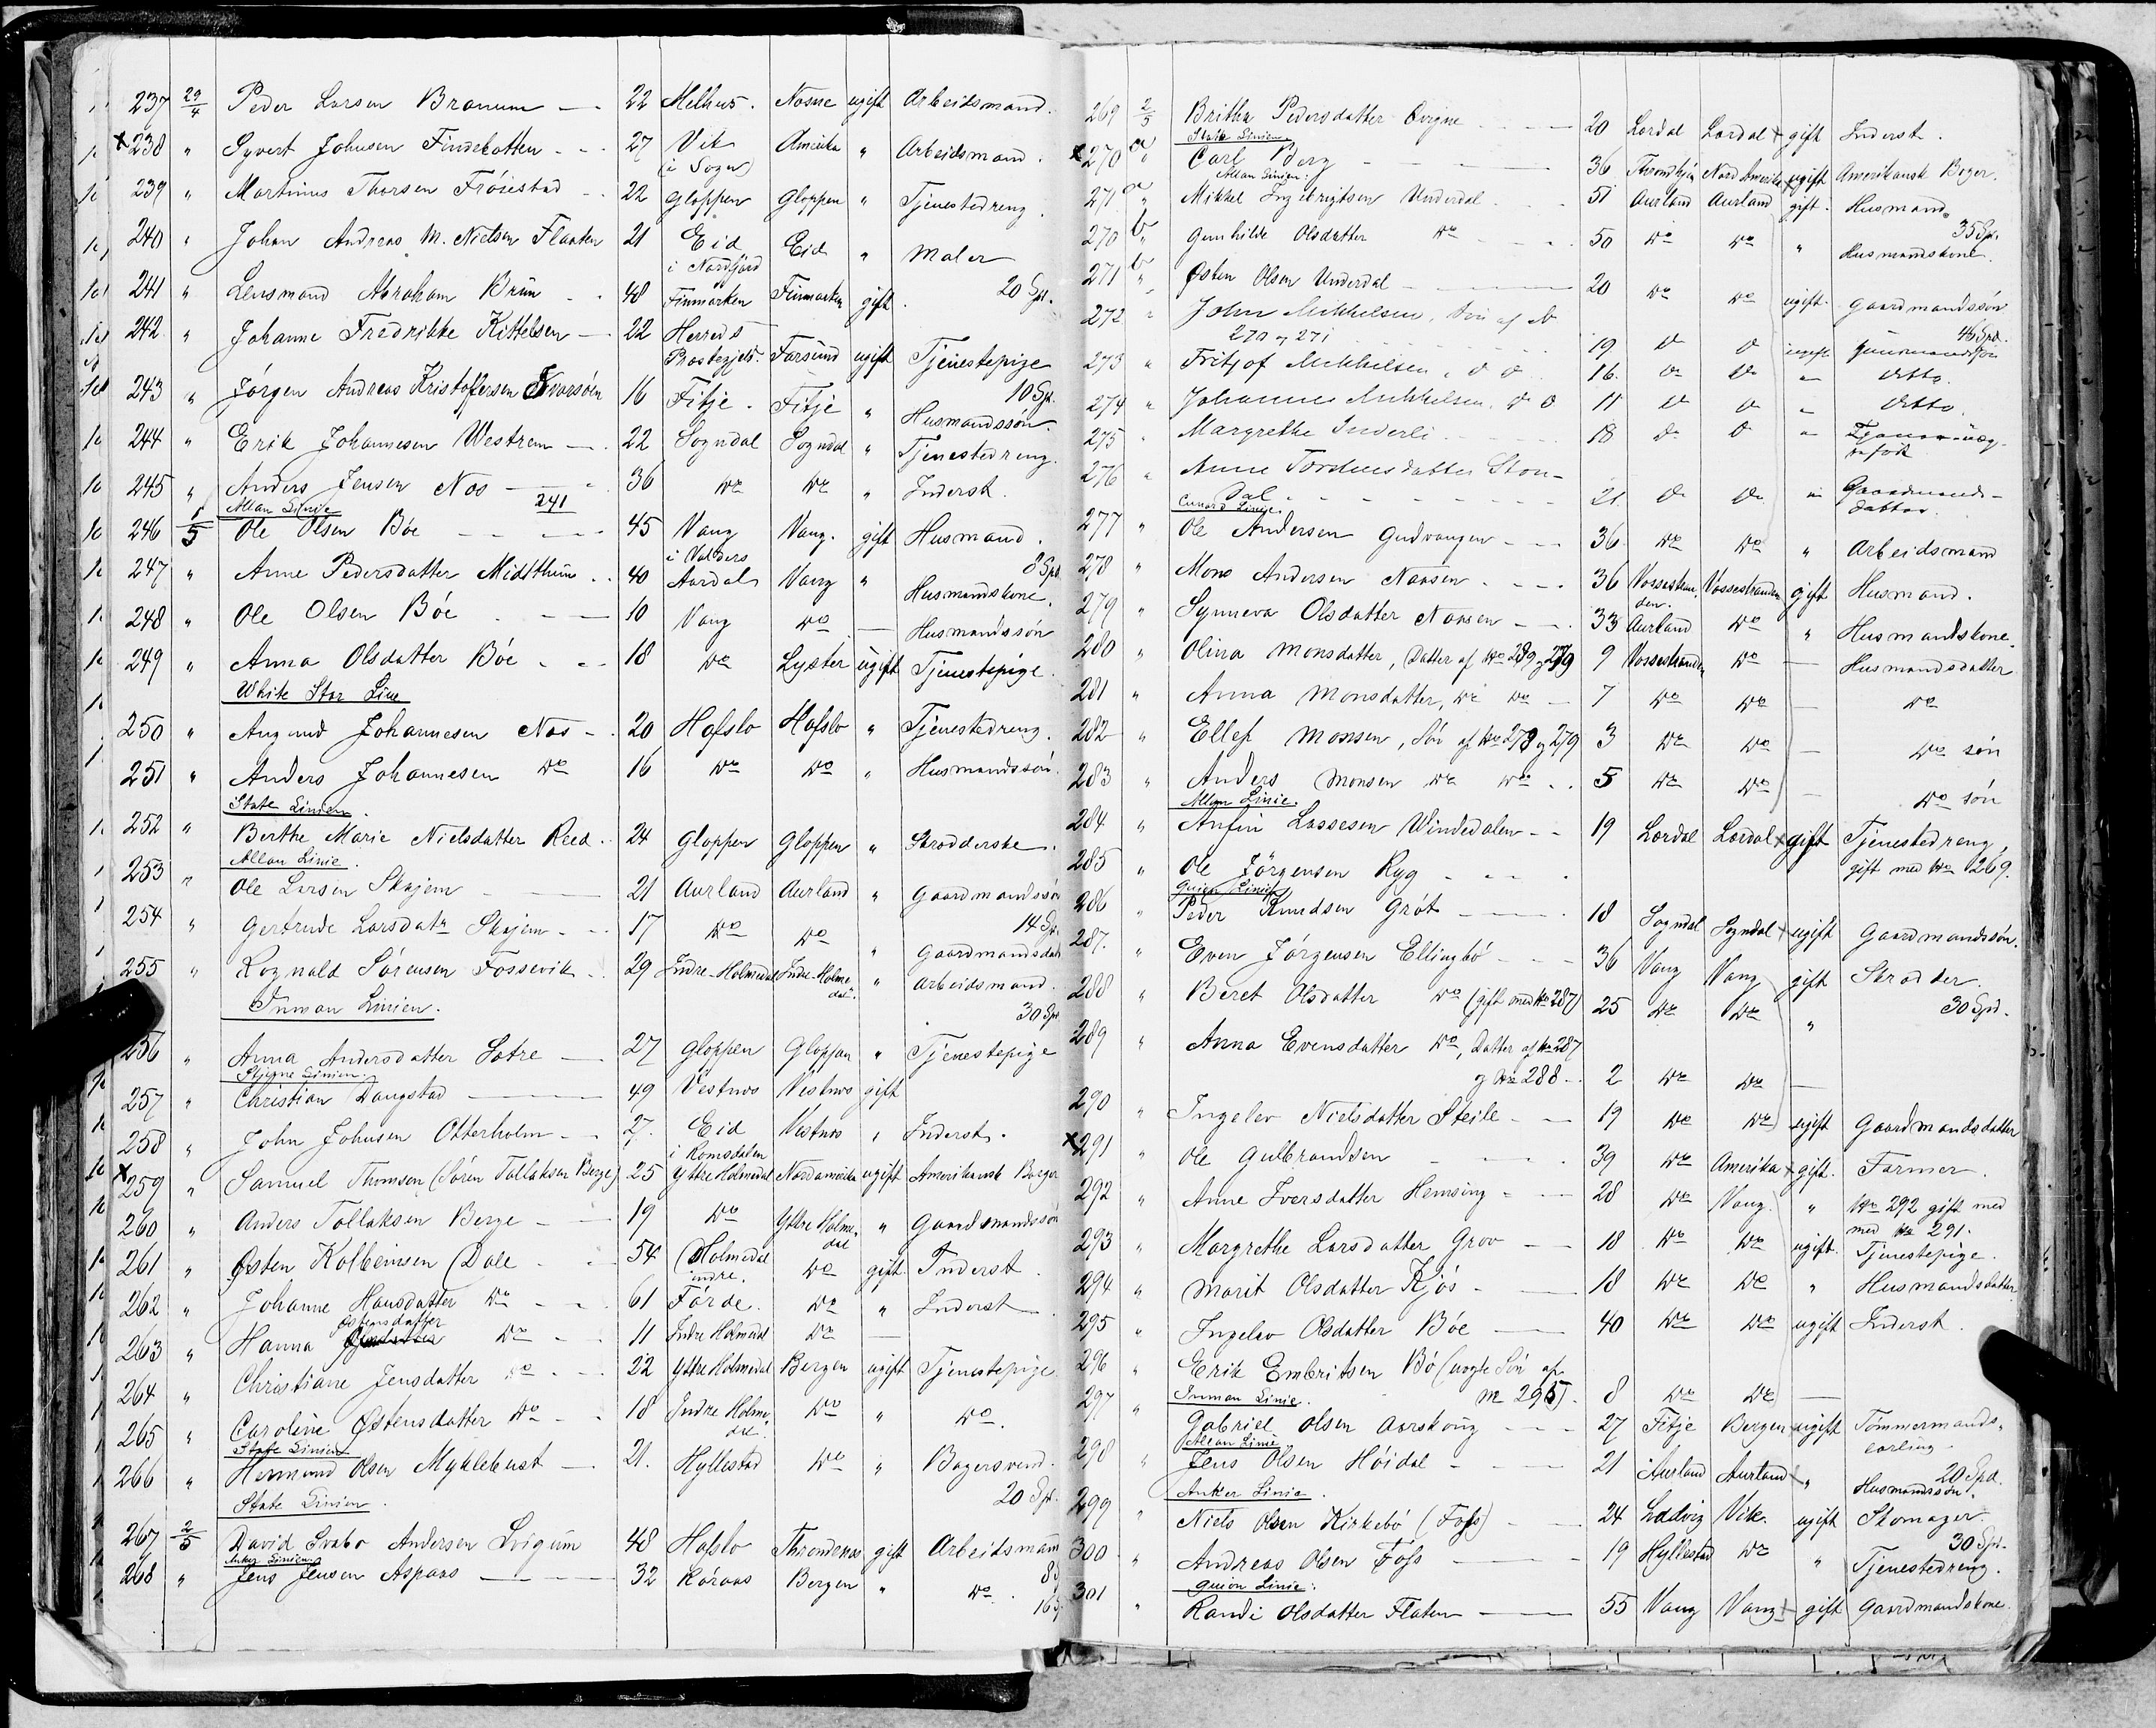 237 29/4 Peder Larsen Branum 22 Melhus. Nosne ugift Arbeidsmand.
x 238 " Syvert Johnsen Findebotten 27 Vik (i Sogn) Amerika " Arbeidsmand.
239 " Martinus Thorsen Fröiestad 22 Gloppen Gloppen " Tjenestedreng.
240 " Johan Andreas M. Nielsen Flaaten 21 Eid i Nordfjord Eid " Maler
20 Spd.
241 " Lensmand Abraham Brun 48 Finmarken Finmarken gift.
242 " Johanne Fredrikke Kittelsen 22 Herreds Præstegjeld. Farsund ugift Tjenestepige
10 Sp.
243 " Jörgen Andreas Kristoffersen Svarsöen 16 Fitje. Fitje " Husmandssön
244 " Erik Johannesen Westrem 22 Sogndal Sogndal " Tjenestedreng.
245 " Anders Jensen Nos 36 do do " Inderst.
Allan Linie 241
246 1/5 Ole Olsen Böe 45 Vang i Valders Vang. gift Husmand.
8 Spd.
247 " Anne Pedersdatter Midtthun 40 Aardal Vang " Husmandskone.
248 " Ole Olsen Böe 10 Vang do — Husmandssön
249 " Anna Olsdatter Böe 18 do Lyster ugift Tjenestepige.
White Star Line
250 " Augund Johannesen Nos 20 Hafslo Hafslo " Tjenestedreng.
251 " Anders Johannesen do 16 do do " Husmandssön.
State Linien.
252 " Berthe Marie Nielsdatter Reed 24 Gloppen Gloppen " Skrædderske.
Allan Linie.
253 " Ole Larsen Skajem 21 Aurland Aurland " Gaardmandssön
14 Sp.
254 " Gertrude Larsdatr Skajem 17 do do " Gaardmandsdatr
255 " Rognald Sörensen Fossevik 29 Indre-Holmedal Indre-Holmedal. " Arbeidsmand.
Inman Linien. 30 Spd
256 " Anna Andersdatter Sætre 27 Gloppen Gloppen " Tjenestepige
Stjerne Linien.
257 " Christian Daugstad 49 Vestnæs Vestnæs gift
258 " John Johnsen Otterholm 27. Eid i Romsdalen Vestnæs " Inderst.
x 259 " Samuel Thomsen (Sören Tollaksen Berge) 25 Yttre Holmedal Nordamerika ugift Amerikansk Borger
260 " Anders Tollaksen Berge 19 do Yttre Holmedal " Gaardmandssön
261 " Östen Kolbeinsen Dale 54 Holmedal indre. do gift. Inderst.
262 " Johanne Hansdatter do 61 Förde. do " Inderst
263 " Hanna Östensdatter do 11 Indre Holmedal do —
264 " Christiane Jensdatter do 22 Yttre Holmedal Bergen ugift Tjenestepige
265 " Caroline Östensdatter do 18 Indre Holmedal. do " do.
State Linien
266 " Hermund Olsen Myklebust 21. Hyllestad do " Bagersvend.
State Linien. 20 Spd.
267 2/5 David Svabo Andersen Svigum 48 Hafslo Throndenæs gift Arbeidsmand
Anker Linien
268 " Jens Jensen Aspaas 32 Röraas Bergen " do.
269 2/5 Britha Pedersdatter Qvigne 20 Lærdal Lærdal x gift Inderst.
State Linien
x 270 a " Carl Berg 36 Throndhjem Nord Amerika ugift Amerikansk Borger.
Allan Linien.
271 a " Mikkel Ingebrigtsen Underdal 51 Aurland Aurland gift. Husmand.
35 Spd.
270 b " Gunhilde Olsdatter do 50 do do " Husmandskone.
271 b " Östen Olsen Underdal 20 do do ugift. Gaardmandssön
46 Spd.
272 " John Mikkelsen, Sön af No 270 og 271 19 do do ugift. Husmandssön
273 " Fritjof Mikkelsen, do do 16. do do " Ditto.
274 " Johannes Mikkelsen, do do 11 do do " Ditto.
275 " Margrethe Inderli 18 do do "
276 " Anne Torsteinsdatter Stondal 21. do do " Gaardmandsdatter.
Cunard Linie.
277 " Ole Andersen Gudvangen 36 do do " Arbeidsmand
278 " Mons Andersen Naasen 36 Vossestranden. Vossestranden gift Husmand.
279 " Synneva Olsdatter Naasen 33 Aurland do " Husmandskone.
280 " Olina Monsdatter, Datter af No 289 og 279 9 Vossestranden do — Husmandsdatter
281 " Anna Monsdatter, do do 7 do do — do
282 " Ellef Monsen, Sön af No 278 og 279 3 do do — do sön
283 " Anders Monsen do do 5 do do — do sön
Allan Linie.
284 " Anfin Lassesen Windedalen 19 Lærdal Lærdal x gift Tjenestedreng, gift med No 269.
285 " Ole Jörgensen Ryg
Guion Linie
286 " Peder Knudsen Gröt 18 Sogndal Sogndal x ugift Gaardmandssön.
287. " Even Jörgensen Ellingbö 36 Vang Vang gift Skrædder.
30 Spd.
288 " Beret Olsdatter do (gift med No 287) 25 do do "
289 " Anna Evensdatter do, Datter af No 287
og No 288 2 do do —
290 " Ingelev Nielsdatter Steile 19 do do ugift Gaardmandsdatter
x 291 " Ole Gulbrandsen 39 do Amerika x gift. Farmer.
292 " Anne Iversdatter Hemsing 28 do Vang. " No 292 gift med
med No 291.
293 " Margrethe Larsdatter Grov 18 do do ugift. Tjenestepige.
294 " Marit Olsdatter Kjös 18 do do " Husmandsdatter
295 " Ingelev Olsdatter Böe 40 do do ugift Inderst.
296 " Erik Embritsen Bö (uægte Sön af
No 295). 8 do do —
Inman Linie.
297 " Gabriel Olsen Aarskoug 27 Fitje Bergen ugift Tömmermandslærling
Allan Linie
298 " Jens Olsen Höidal 21 Aurland Aurland x " Husmandssön.
20 Spd.
Anker Linie.
299 " Niels Olsen Kirkebö (Foss) 24 Ladvig Vik. ugift Skomager.
30 Spd.
300 " Andreas Olsen Foss 19 Hyllestad do " Tjenestedreng.
Guion Linie.
301 " Randi Olsdatter Flaten 55 Vang Vang x gift Gaardmandskone.